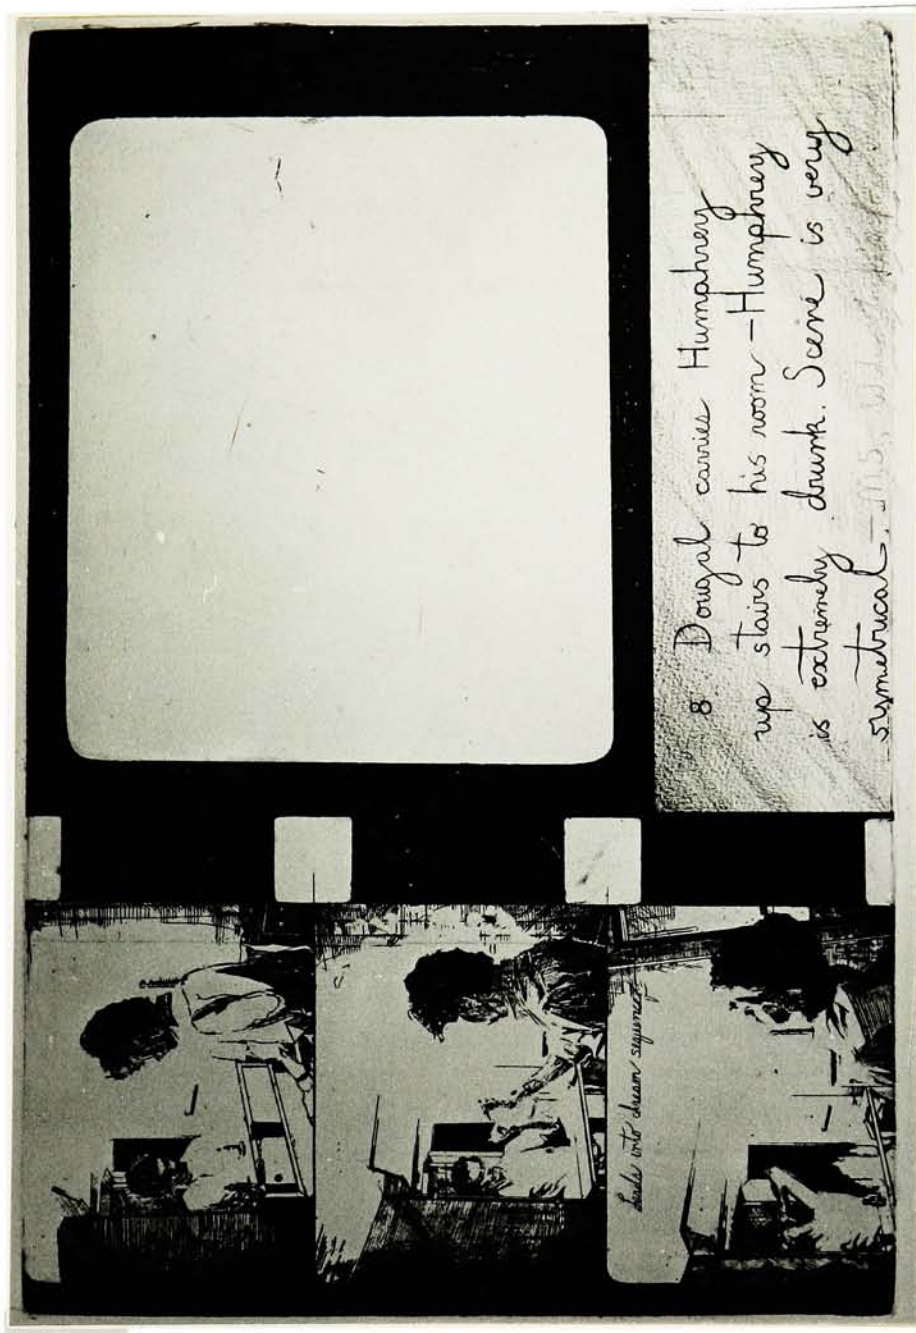 8 Dougal carries Humphrey
up stairs to his room – Humphrey
is extremely drunk. Scene is very
symetrical. – MS, W.
Leads into dream sequence